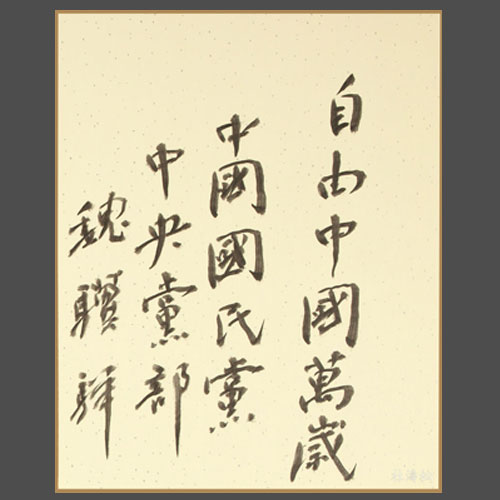 自由中國萬歲
中國國民黨
中央黨部
魏